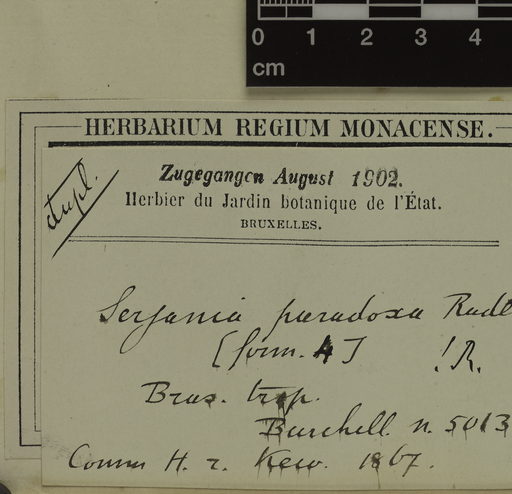 0 1 2 3 4
cm
HERBARIUM REGIUM MONACENSE.
dupl.
Zugegangen August 1902.
Herbier du Jardin botanique de l'État.
BRUXELLES.
Serjania paradoxa Radl
[form. 4] !R.
Bras. trop.
Burchell n. 5013
Comm H. r. Kew. 1867.